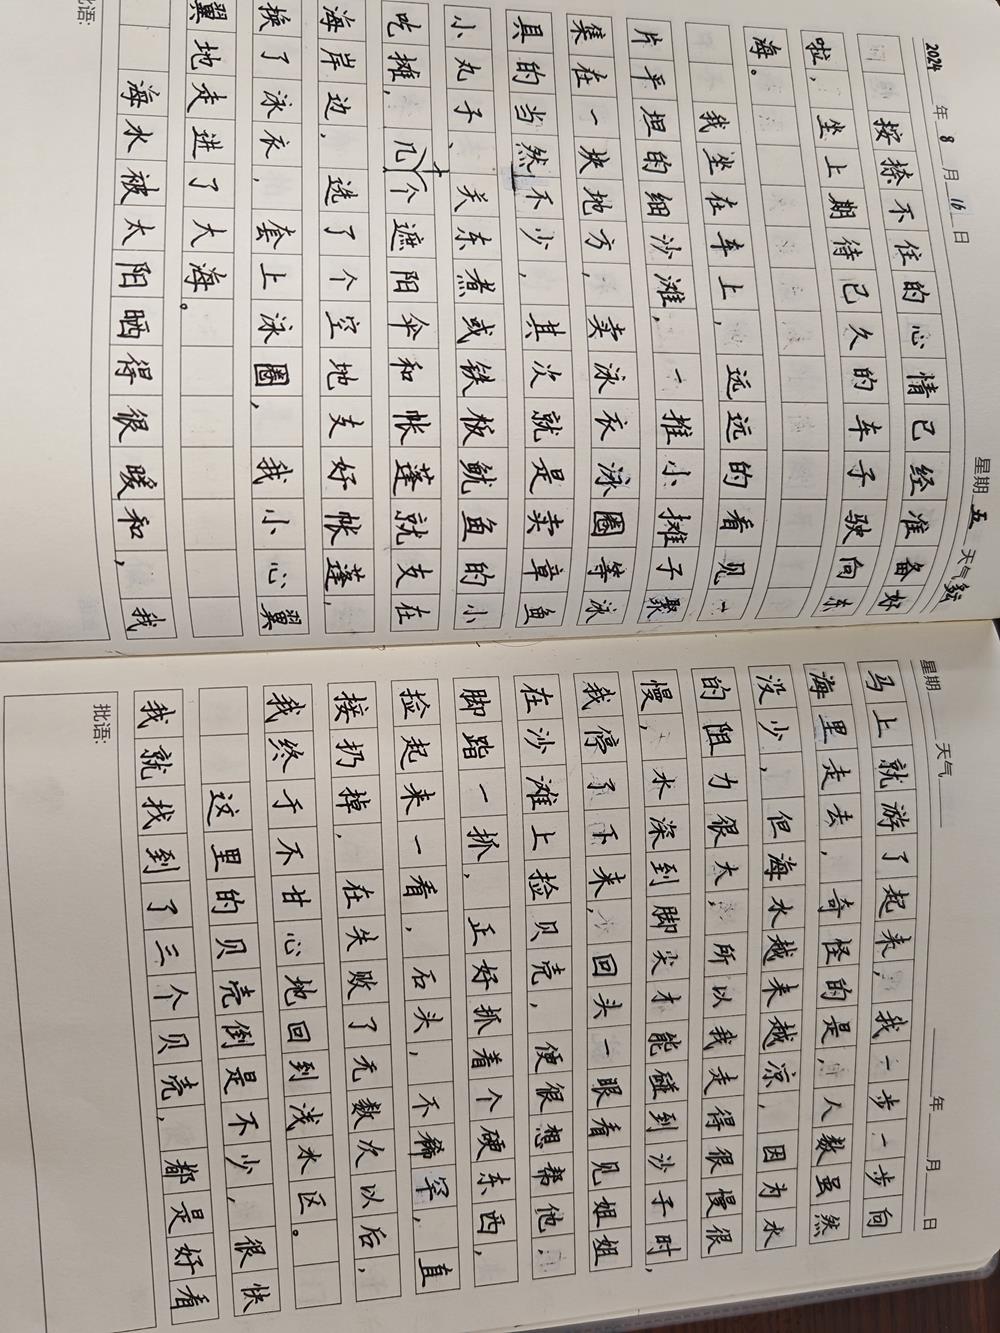 2024年8月16日 星期五 天气
按捺不住的心情已经准备好
啦，坐上期待已久的车子驶向东
海。
我坐在车上，远远的看见一
片平坦的细沙滩，一推小摊子聚
集在一块地方，卖泳衣泳圈等泳
具的当然不少，其次就是卖章鱼
小丸子、关东煮或铁板鱿鱼的小
吃摊，几十个遮阳伞和帐蓬就支在
海岸边，选了个空地支好帐蓬，
换了泳衣，套上泳圈，我小心翼
翼地走进了大海。
海水被太阳晒得很暖和，我
批语:
星期 天气 年 月 日
马上就游了起来，我一步一步向
海里走去，奇怪的是，人数虽然
没少，但海水越来越凉，因为水
的阻力很大，所以我走得很慢很
慢，水深到脚尖才能碰到沙子时，
我停了下来，回头一眼看见姐姐
在沙滩上捡贝壳，便很想帮他，
脚踏一抓，正好抓着个硬东西，
捡起来一看，石头，不稀罕，直
接扔掉，在失败了无数次以后，
我终于不甘心地回到浅水区。
这里的贝壳倒是不少，很快
我就找到了三个贝壳，都是好看
批语: